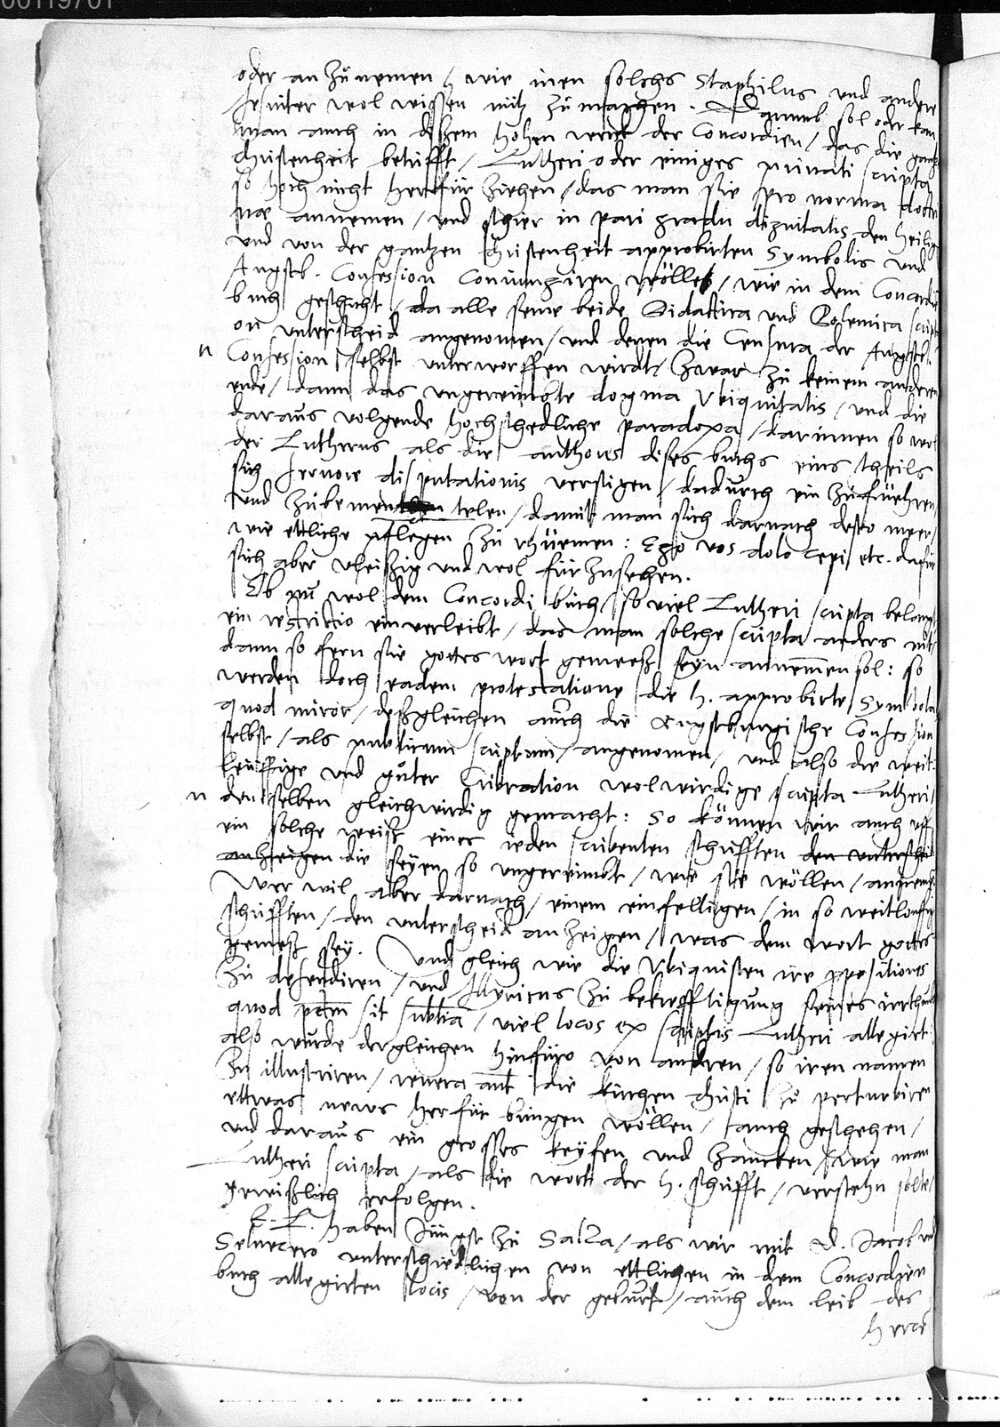 00119701
oder an zu nemen / wie inen solchs Staphilus und andere
Jesuiter wol wissen nütz zu machen. Darumb sol oder kan
man auch in disem hohen werck der Concordien / das die gantz
Christenheit betrifft / Lutheri oder einiges privati scripta
so hoch nicht herfür ziehen / das man sie pro norma doctri
næ annemen / und schier in pari gradu dignitatis den heilig
und von der gantzen Christenheit approbirten Symbolis und
Augsb. Confession coniungiren wölle / wie in dem Concordi
buch geschicht / da alle seine beide Didactica und Polemica script
on unterscheid angenomen / und denen die Censura der Augsb.
n Confession selbst unterworffen wirdt / Zwar zu keinem anderen
ende / dann das ungereimbte dogma Ubiquitatis / und die
daraus volgende hochschedliche paradoxa / darinnen so wol
der Lutherus als die authores dises buchs eins theils
sich fervore disputationis verstigen / dadurch ein zufüehren
und zubementelen / damit man sich darnach desto meer
wie ettliche pflegen zu rhüemen: Ego vos dolo cepi etc. dafür
sich aber vleissig und wol für zusehen.
Ob nu wol dem Concordi buch / so viel Lutheri scripta belangt
ein restrictio einverleibt / das man solche scripta anders nit
dann so fern sie gottes wort gemeess seyn annemmen sol: so
werden doch eadem protestatione die h. approbirte Symbola
quod miror / dessgleichen auch die Augspurgische Confession
selbst / als publicum scriptum / angenomen / und also die weit
leuffige und guter Cribration wolwirdige scripta Lutheri
n denselben gleichwirdig gemacht: So können wir auch uff
ein solche weiss eines ieden scribenten schrifften den unterscheid
anzeigen die seyen so ungereimbt / wie sie wöllen / annemen
Wer wil aber darnach / einem einfeltigen / in so weitleuffig
schrifften / den unterscheid anzeigen / was dem wort gottes
gemess sey. Und gleich wie die Ubiquisten ire propositiones
zu defendiren / und Illyricus zu bekrefftigung seines irthumb
quod pctm sit subtia / viel locos ex scriptis Lutheri allegirt
also wurde dergleichen hinfüro von andren / so iren namen
zu illustriren / revera aut die kirchen Christi zu perturbiren
ettwas news herfür bringen wöllen / auch geschehen /
und daraus ein grosses keyfen und zancken / wie man
Lutheri scripta / als die wort der h. schrifft / verstehn solte /
gewisslich erfolgen.
E. L. haben jüngst zu Saltza / als wir mit D. Jacob und
Selneccero unterschiedtlichen von ettlichen in dem Concordien
buch allegirten locis / von der geburt / auch dem leib des
Herrn